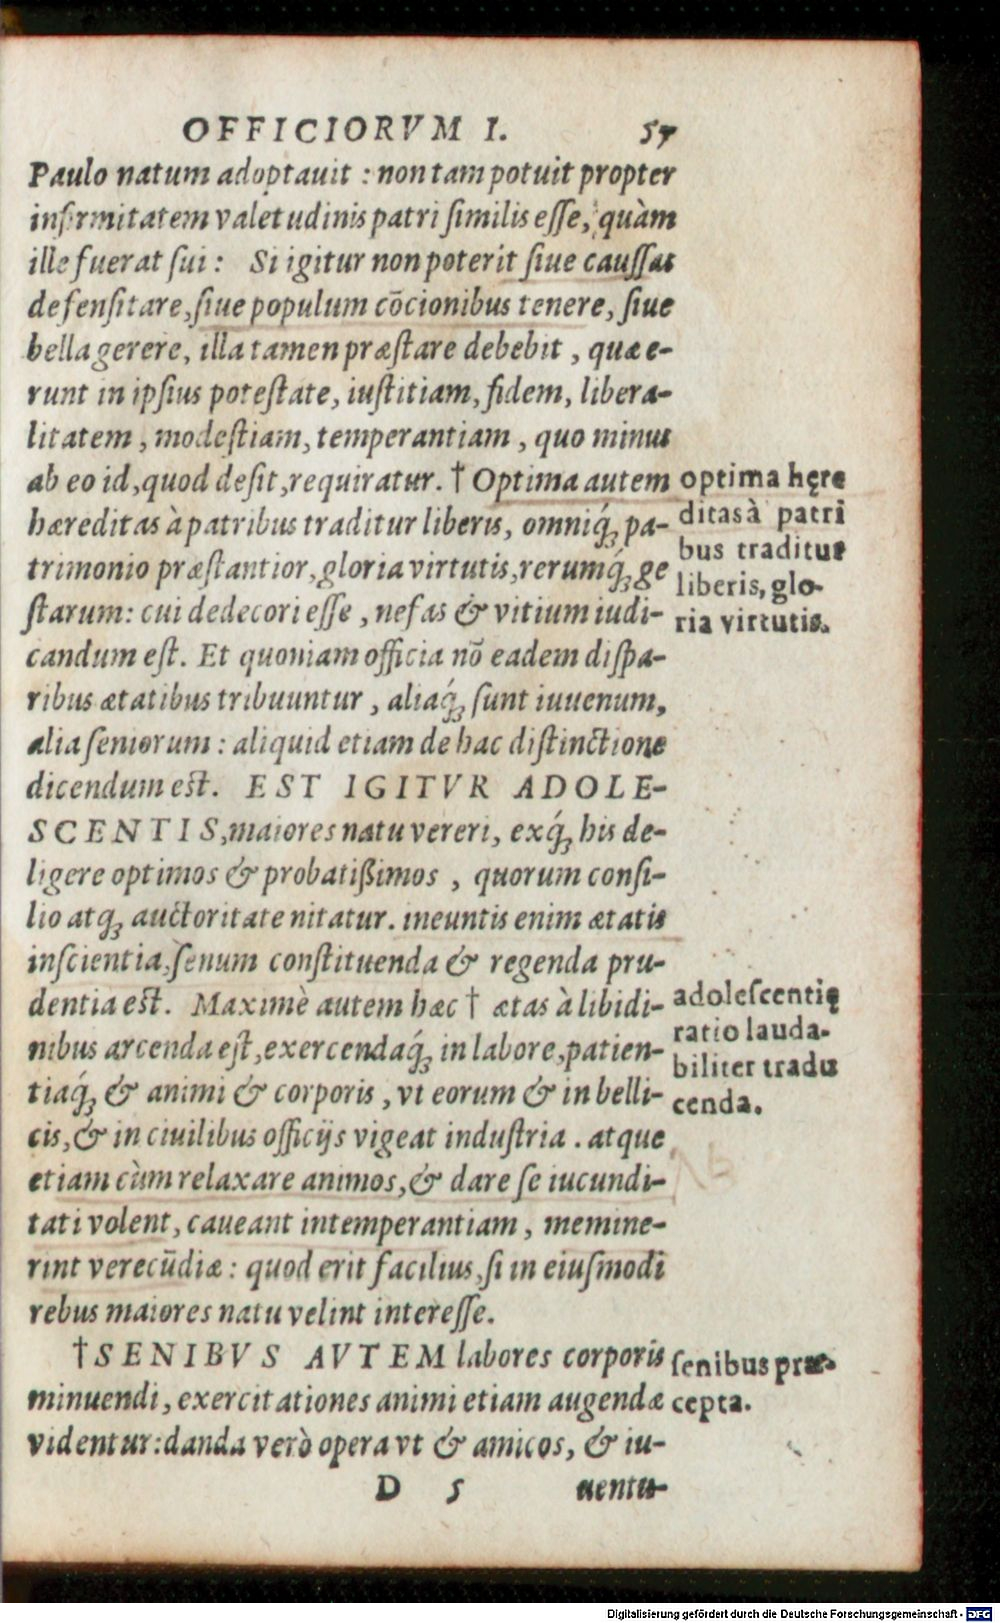 OFFICIORVM I. 57
Paulo natum adoptauit : non tam potuit propter
infirmitatem valetudinis patri similis esse, quàm
ille fuerat sui : Si igitur non poterit siue caussas
defensitare, siue populum cōcionibus tenere, siue
bella gerere, illa tamen præstare debebit , quæ e-
runt in ipsius potestate, iustitiam, fidem, libera-
litatem , modestiam, temperantiam , quo minus
ab eo id, quod desit, requiratur. † Optima autem
hæreditas à patribus traditur liberis, omniq́; pa-
trimonio præstantior, gloria virtutis, rerumq́; ge
starum: cui dedecori esse , nefas & vitium iudi-
candum est. Et quoniam officia nō eadem dispa-
ribus ætatibus tribuuntur , aliaq́; sunt iuuenum,
alia seniorum : aliquid etiam de hac distinctione
dicendum est. EST IGITVR ADOLE-
SCENTIS, maiores natu vereri, exq́; his de-
ligere optimos & probatißimos , quorum consi-
lio atq; auctoritate nitatur. ineuntis enim ætatis
inscientia, senum constituenda & regenda pru-
dentia est. Maximè autem hæc † ætas à libidi-
nibus arcenda est, exercendaq́; in labore, patien-
tiaq́; & animi & corporis , vt eorum & in belli-
cis, & in ciuilibus officijs vigeat industria . atque
etiam cùm relaxare animos, & dare se iucundi-
tati volent, caueant intemperantiam , memine-
rint verecūdiæ : quod erit facilius, si in eiusmodi
rebus maiores natu velint interesse.
† SENIBVS AVTEM labores corporis
minuendi, exercitationes animi etiam augendæ
videntur: danda verò opera vt & amicos, & iu-
D 5 uentu-
optima hęre
ditas à patri
bus traditur
liberis, glo-
ria virtutis.
adolescentię
ratio lauda-
biliter tradu
cenda.
senibus præ-
cepta.
Digitalisierung gefördert durch die Deutsche Forschungsgemeinschaft - DFG